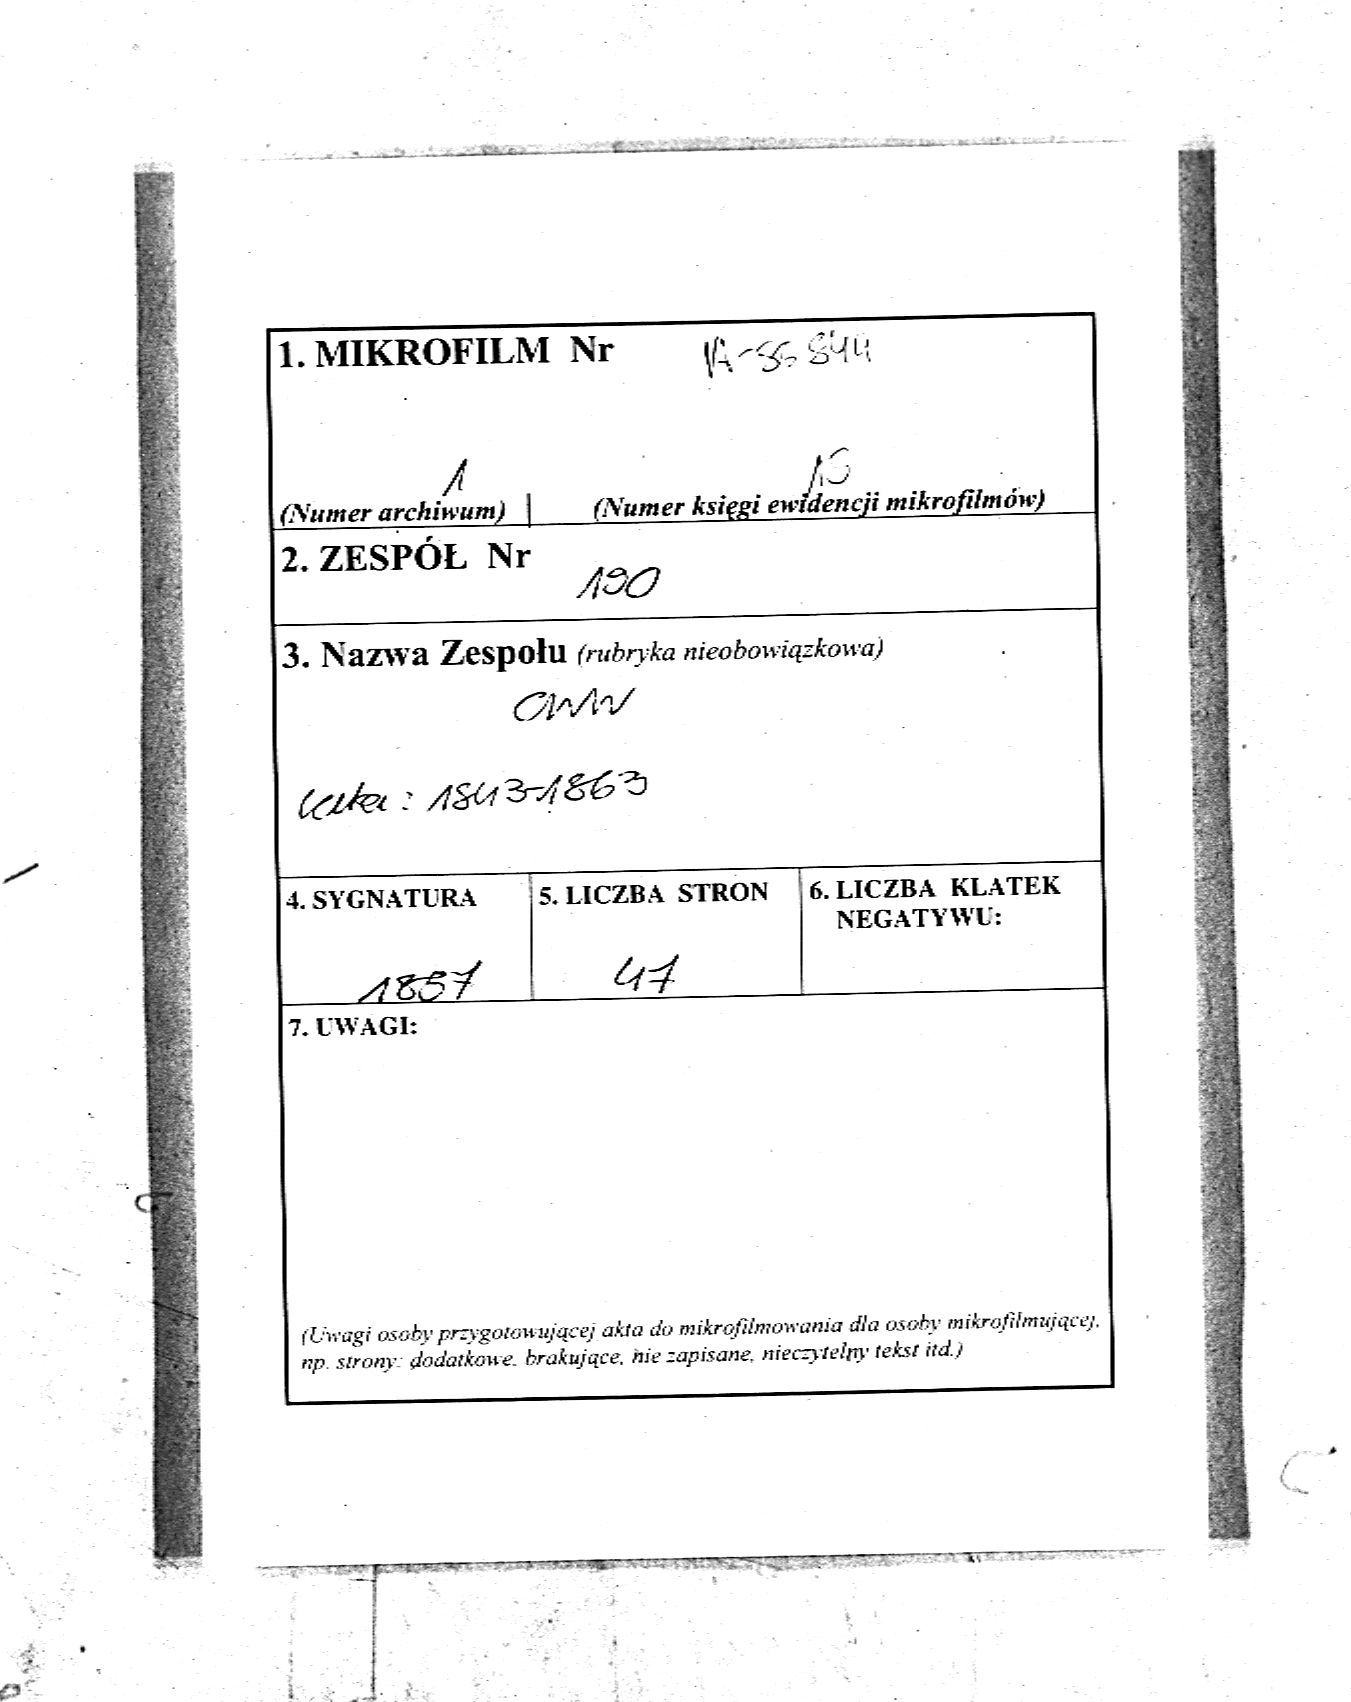 1. MIKROFILM Nr
1 15
(Numer archiwum) | (Numer księgi ewidencji mikrofilmów)
2. ZESPÓŁ Nr
190
3. Nazwa Zespołu (rubryka nieobowiązkowa)
CWW
lata: 1843-1863
4. SYGNATURA 5. LICZBA STRON 6. LICZBA KLATEK
NEGATYWU:
1857 47
7. UWAGI:
(Uwagi osoby przygotowującej akta do mikrofilmowania dla osoby mikrofilmującej,
np. strony: dodatkowe, brakujące, nie zapisane, nieczytelny tekst itd.)